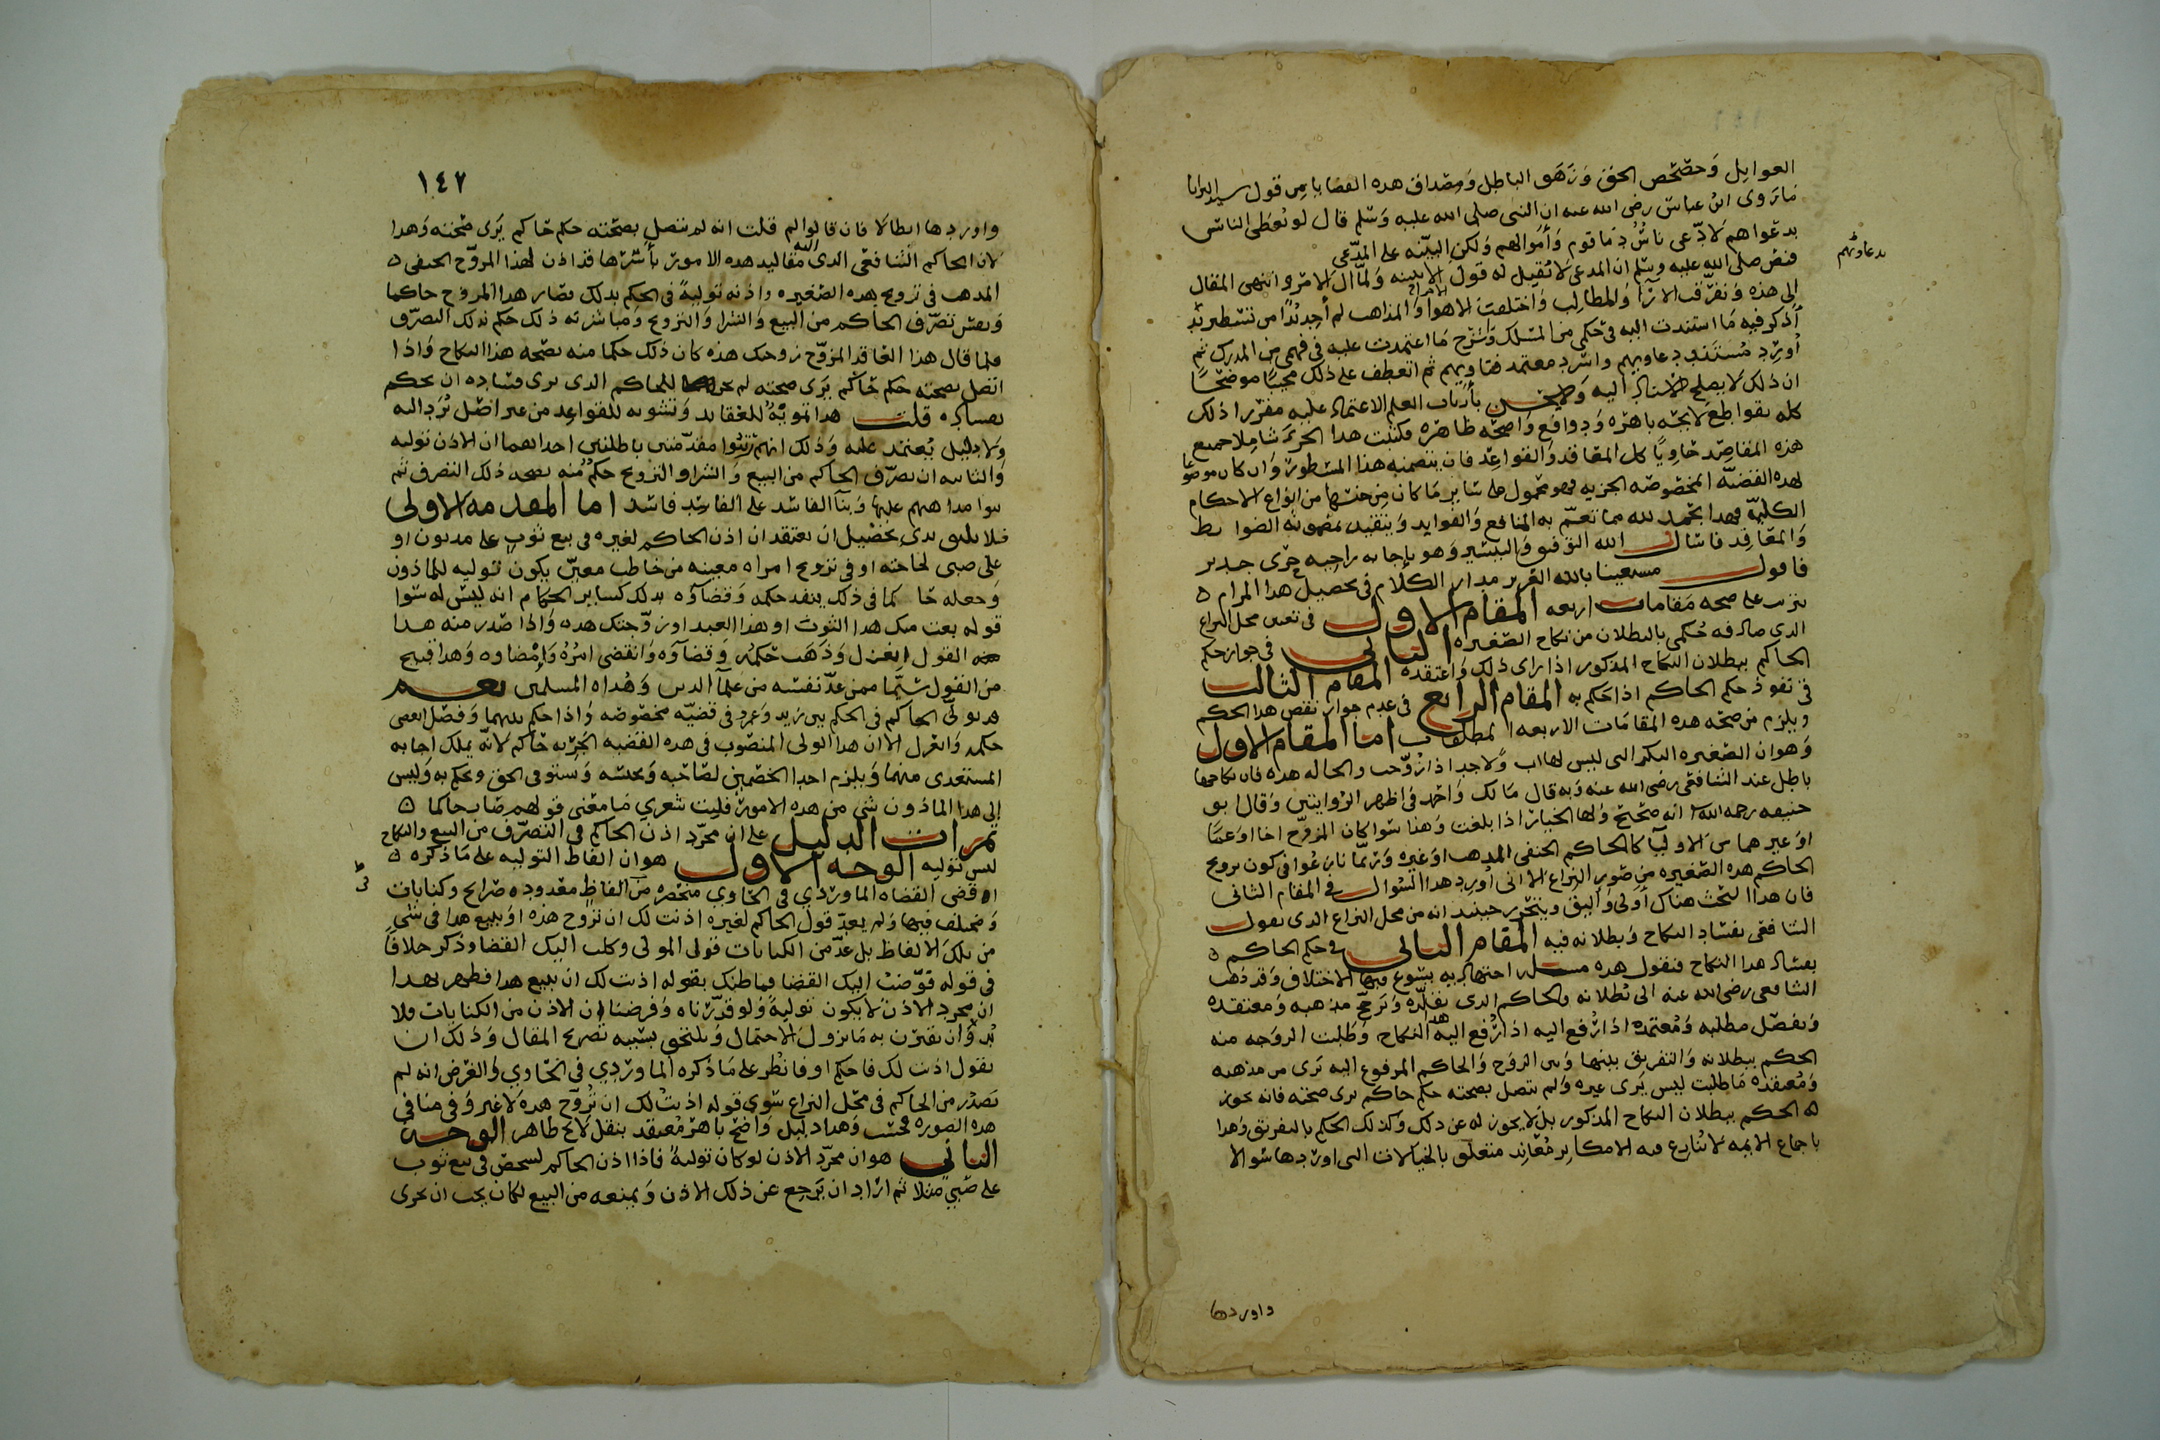 العوايل وحصحص الحق وزهق الباطل ومصداق هذه القضايا من قول سيد البرايا
ما روى ابن عباس رضى الله عنه ان النبى صلى الله عليه وسلم قال لو يعطى الناس
بدعواهم لادعى ناس دما قوم وأموالهم ولكن البينه على المدعى
بدعاويهم
فنص صلى الله عليه وسلم ان المدعى لا يقبل له قول الا ببينه ولما ال الامر وانتهى المقال
الى هذه وتفرقت الارا والمطالب واختلفت الاهوا والمذاهب لم أجد بدا من تسطير
أذكر فيه ما استندت اليه فى حكمى من المسلك واشرح ما اعتمدت عليه فى فهمى من المدرك ثم
أورد مستند دعاويهم واسرد معتمد فتاويهم ثم انعطف على ذلك مجيبا موضحا
ان ذلك لا يصلح الاستناد اليه ولا يحسن بأرباب العلم الاعتماد عليه مقررا ذلك
كله بقواطع لايحه باهره ودوافع واضحه ظاهره فكتبت هذا شاملا جميع
هذه المقاصد حاويا كل المعاقد والقواعد فان يتضمنه هذا المسطور وان كان موضوعا
لهذه القضيه المخصوصه الجزيه فهو محمول على ساير ما كان من جنسها من انواع الاحكام
الكليه فهذا بحمد لله مما تعم به المنافع والفوايد ويتقيد بمضمونه الضوابط
والمعاقد فاسال الله التوفيق والتيسير وهو باجابه راجيه حرى جدير
فاقول مستعينا بالله العزيز مدار الكلام فى تحصيل هذا المرام ه
يترتب على صحه مقامات اربعه المقام الاول فى تعيين محل النزاع
الذى صادفه حكمى بالبطلان من نكاح الصغيره الثانى فى جواز حكم
الحاكم ببطلان النكاح المذكور اذا راى ذلك واعتقده المقام الثالث
فى نفوذ حكم الحاكم اذا حكم به المقام الرابع فى عدم جواز نقض هذا الحكم
ويلزم من صحه هذه المقامات الاربعه المطلوب أما المقام الاول
وهو ان الصغيره البكر التى ليس لها اب ولا جد اذا زوجت والحاله هذه فان نكاحها
باطل عند الشافعى رضى الله عنه وبه قال مالك واحمد فى اظهر الروايتين وقال ابو
حنيفه رحمه الله انه صحيح ولها الخيار اذا بلغت وهذا سوا كان المزوج اخا او عما
او غيرهما من الاوليا كالحاكم الحنفى المذهب او غيره وربما نازعوا فى كون تزويج
الحاكم هذه الصغيره من صور النزاع الا انى أورد هذا السوال فى المقام الثانى
فان هذا البحث هناك أولى وأليق ويتحرر حينيذ انه من محل النزاع الذى يقول
الشافعى بفساد النكاح وبطلانه فيه المقام الثانى فى حكم الحاكم ه
بفساد هذا النكاح فنقول هذه مسله اجتهاديه يسوغ فيها الاختلاف وقد ذهب
الشافعى رضى الله عنه الى بطلانه والحاكم الذى يقلده ويرجح مذهبه ومعتقده
ويفصل مطلبه ومعتمده اذا رفع اليه اذا رفع اليه هذا النكاح وطلبت الزوجه منه
الحكم ببطلانه والتفريق بينها وبين الزوج والحاكم المرفوع اليه يرى من مذهبه
ومعتقده ما طلبت ليس يرى غيره ولم يتصل بصحته حكم حاكم يرى صحته فانه يجوز
له الحكم ببطلان النكاح المذكور بل لا يجوز له غير ذلك وكذلك الحكم بالتفريق وهذا
باجماع الايمه لا ينازع فيه الا مكابر معاند متعلق بالخيالات التى اوردها سوالا
واوردها
١٤٢
واوردها ابطالا فان قالوا لم قلت انه لم يتصل بصحته حكم حاكم يرى صحته وهذا
لان الحاكم الشافعى الذى اليه مقاليد هذه الامور بأسرها قد اذن لهذا المزوج الحنفى ه
المذهب فى تزويج هذه الصغيره واذنه توليه فى الحكم بذلك فصار هذا المزوج حاكما
ونفس تصرف الحاكم من البيع والشرا والتزويج ومباشرته ذلك حكم بذلك التصرف
فلما قال هذا العاقد المزوج زوجتك هذه كان ذلك حكما منه بصحه هذا النكاح واذا
اتصل بصحته حكم حاكم يرى صحته لم يجز للحاكم الذى يرى فساده ان يحكم
بفساده قلت هذا تمويه للعقايد وتشويه للقواعد من غير اصل يرد اليه
ولا دليل يعتمد عليه وذلك انهم رتبوا مقدمتين باطلتين احداهما ان الاذن توليه
والثانيه ان تصرف الحاكم من البيع والشرا والتزويج حكم منه بصحه ذلك التصرف ثم
بنوا مذاهبهم عليها وبنآ الفاسد على الفاسد فاسد اما المقدمه الاولى
فلا يليق بذى تحصيل ان يعتقد ان اذن الحاكم لغيره فى بيع ثوب على مديون او
على صبى لحاجته او فى تزويج امراه معينه من خاطب معين يكون توليه للماذون
وجعله حاكما فى ذلك ينفذ حكمه وقضآوه بذلك كساير الحكام انه ليس له سوا
قوله بعت منك هذا الثوب او هذا العبد او زوجتك هذه واذا صدر منه هذا
القول انعزل وذهب حكمه وقضآوه وانقضى امره وامضاوه وهذا قبيح
من القول سيما ممن عد نفسه من علمآ الدين وهداه المسلمين نعم
قد يولى الحاكم فى الحكم بين زيد وعمرو فى قضيه مخصوصه واذا حكم بينهما وفصل انقضى
حكمه وانعزل الا ان هذا الولى المنصوب فى هذه القضيه الجزيه حاكم لانه يملك اجابه
المستعدى منهما ويلزم احد الخصمين لصاحبه ويحبسه ويستوفى الحق ويحكم به وليس
الى هذا الماذون شى من هذه الامور فليت شعري ما معنى قولهم صار حاكما ه
ثم رات الدليل على ان مجرد اذن الحاكم فى التصرف من البيع والنكاح
ليس توليه الوجه الاول هو ان الفاظ التوليه على ما ذكره ه
اقضى القضاه الماوردي فى الحاوي منحصره من الفاظ معدوده صرايح وكنايات
ومختلف فيها ولم يعد قول الحاكم لغيره اذنت لك ان تزوج هذه او تبيع هذا فى شى
من تلك الالفاظ بل عد من الكنايات قول المولى وكلت اليك القضا وذكر خلافا
فى قوله فوضت اليك القضا فما ظنك بقوله اذنت لك ان تبيع هذا فظهر بهذا
ان مجرد الاذن لا يكون توليه ولو قدرناه وفرضنا ان الاذن من الكنايات فلا
بد وان يقترن به ما يزول الاحتمال ويلتحق بسببه تصريح المقال وذلك ان
يقول اذنت لك فاحكم او فانظر على ما ذكره الماوردي فى الحاوي والغرض انه لم
تصدر من الحاكم فى محل النزاع سوى قوله اذنت لك ان تزوج هذه لا غير وفرضنا فى
هذه الصوره فحسب وهذا دليل واضح باهر معتقد بنقل لايح ظاهر الوجه
الثانى هو ان مجرد الاذن لو كان توليه فاذا اذن الحاكم لشخص فى بيع ثوب
على صبي مثلا ثم اراد ان يرجع عن ذلك الاذن ويمنعه من البيع لكان يجب ان يجرى